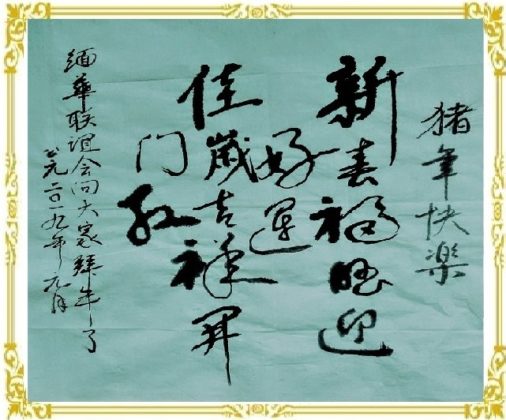 猪年快樂
新春福旺迎
好運
佳歲吉祥開
门红
缅華联谊会向大家拜年了
公元二〇一九年元月